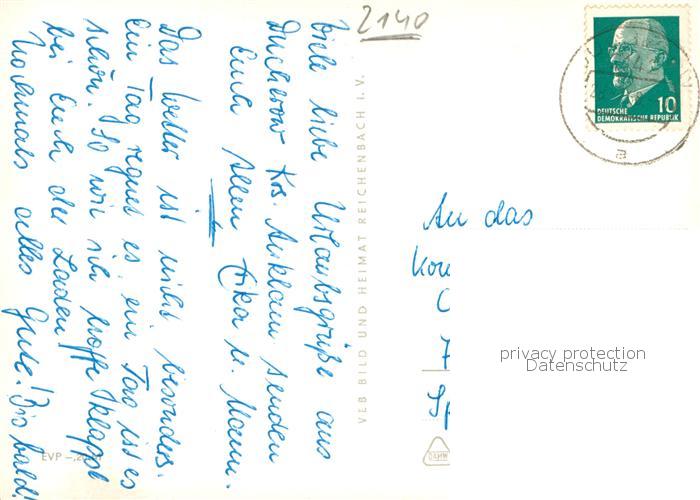 2140
Viele liebe Urlaubsgrüße aus
Ducherow Krs. Anklam senden
Euch allen Erika u. Mann.
Das Wetter ist nicht besonders.
Ein Tag regnet es, ein Tag ist es
schön. So wie ich hoffe klappt
bei Euch der Laden
Nochmals alles Gute! Bis bald!
VEB BILD UND HEIMAT REICHENBACH I. V.
EVP
10
DEUTSCHE
DEMOKRATISCHE REPUBLIK
a
An das
privacy protection
Datenschutz